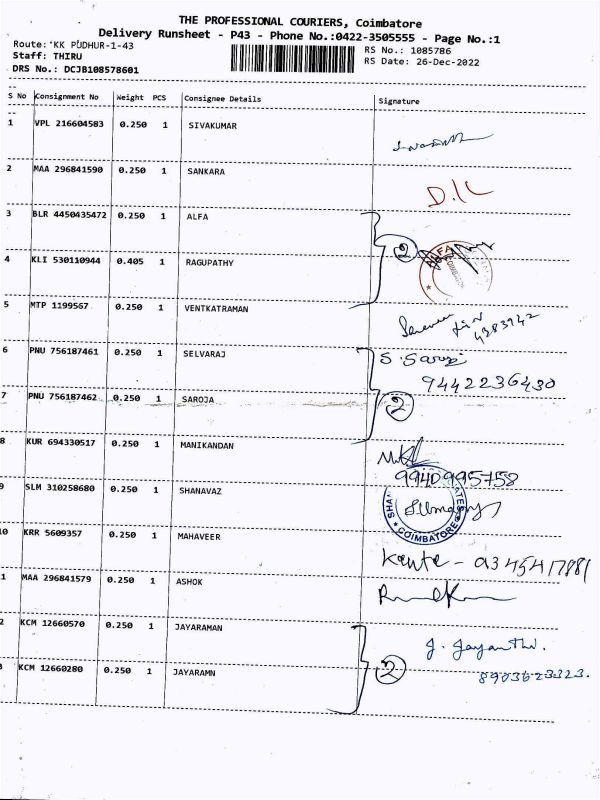 THE PROFESSIONAL COURIERS, Coimbatore
Delivery Runsheet - P43 - Phone No.:0422-3505555 - Page No.:1
Route: KK PUDHUR-1-43 RS No.: 1085786
Staff: THIRU RS Date: 26-Dec-2022
DRS No.: DCJB108578601
S No Consignment No Weight PCS Consignee Details Signature
1 VPL 216604583 0.250 1 SIVAKUMAR
2 MAA 296841590 0.250 1 SANKARA
3 BLR 4450435472 0.250 1 ALFA
2
4 KLI 530110944 0.405 1 RAGUPATHY
5 MTP 1199567 0.250 1 VENTKATRAMAN
4283942
6 PNU 756187461 0.250 1 SELVARAJ S. Saroj
9442236430
7 PNU 756187462 0.250 1 SAROJA 2
8 KUR 694330517 0.250 1 MANIKANDAN
9940995758
9 SLM 310258680 0.250 1 SHANAVAZ
COIMBATORE
10 KRR 5609357 0.250 1 MAHAVEER
1 MAA 296841579 0.250 1 ASHOK
2 KCM 12660570 0.250 1 JAYARAMAN J. Jayanthi.
3 KCM 12660280 0.250 1 JAYARAMN 2 8903623323.